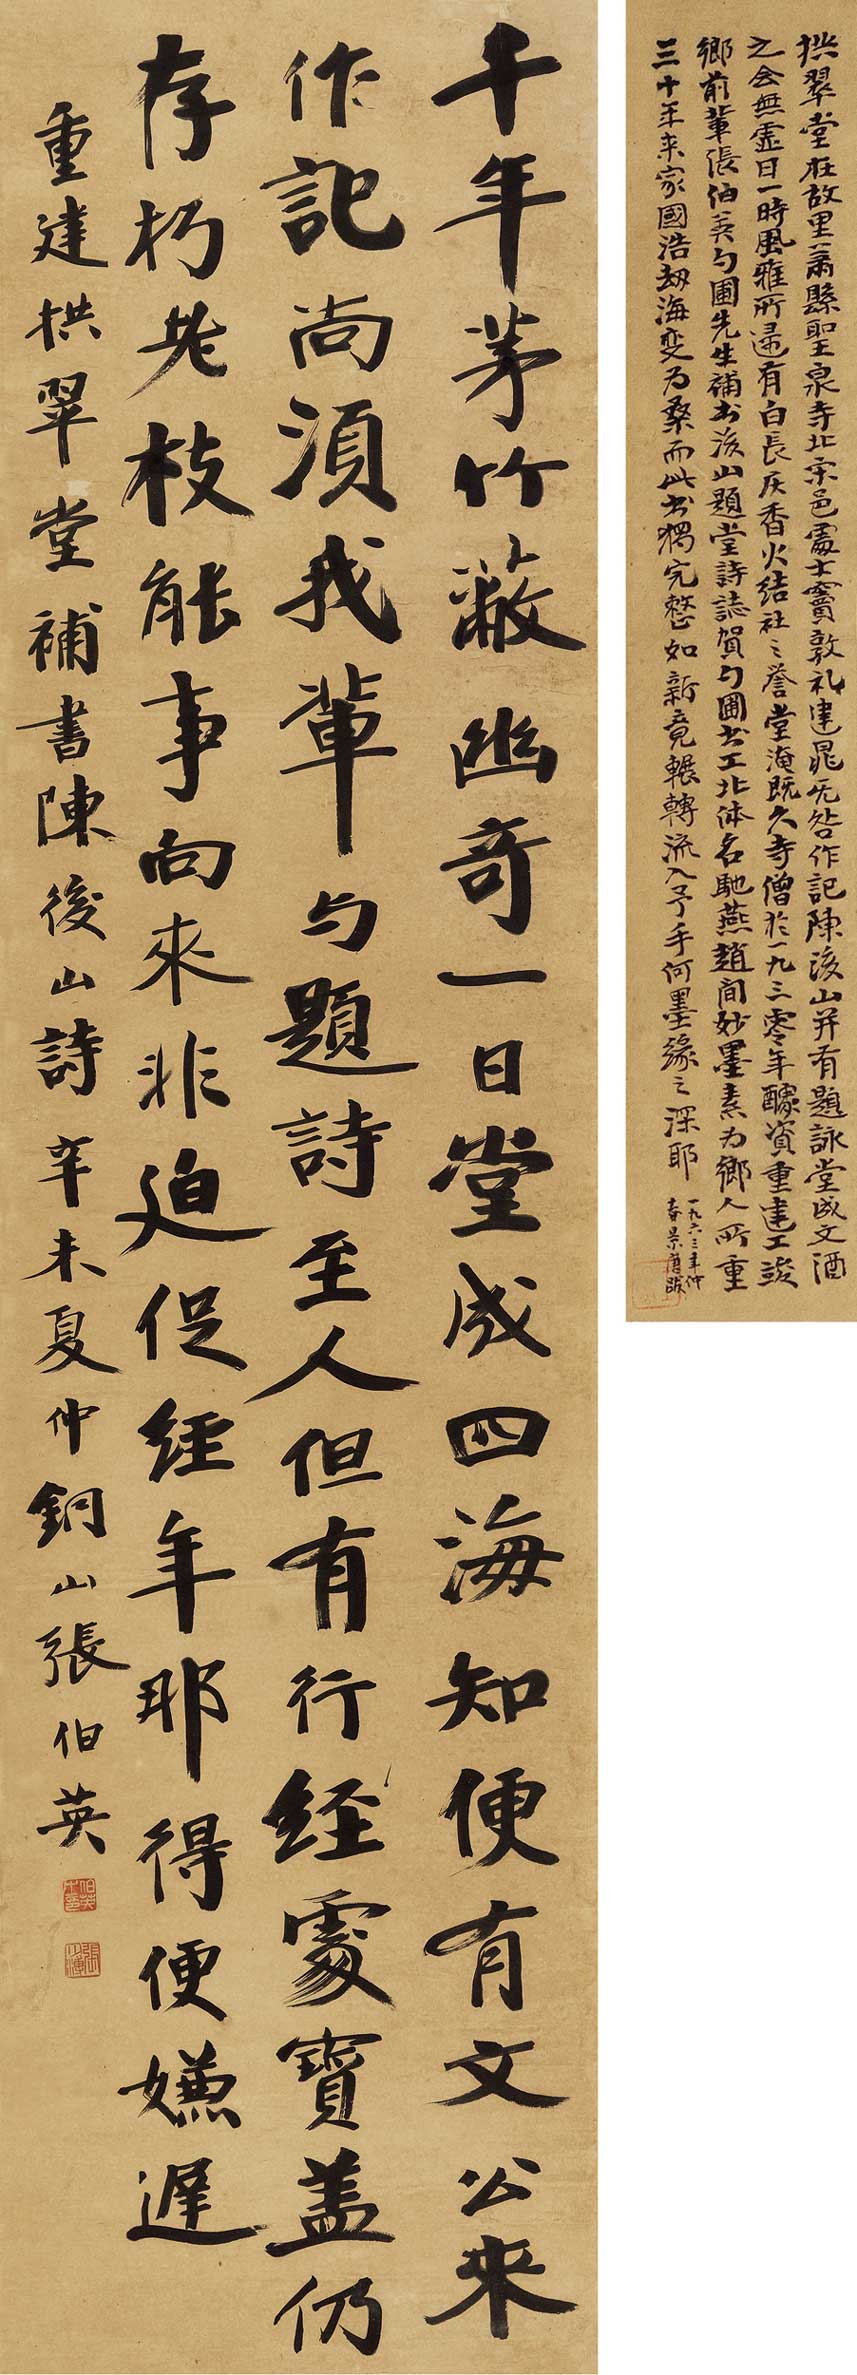 拱翠堂在故里蕭縣聖泉寺北宋邑處士竇敦礼建晁无咎作記陳後山并有題詠堂成文酒
之会無虛日一時風雅所歸有白長庆香火結社之誉堂淹既久寺僧於一九三零年醵資重建工竣
鄉前輩張伯英勺圃先生補书後山題堂詩誌賀勺圃书工北体名馳燕趙间妙墨素为鄉人所重
三十年来家國浩劫海变为桑而此书獨完整如新竟輾轉流入予手何墨緣之深耶
一九六三年仲
春景唐跋
千年茅竹蔽幽奇一日堂成四海知便有文公來
作記尚須我輩与題詩至人但有行經處寶蓋仍
存朽老枝能事向來非迫促經年耶得便嫌遲
重建拱翠堂補書陳後山詩辛未夏仲銅山張伯英
張少溥